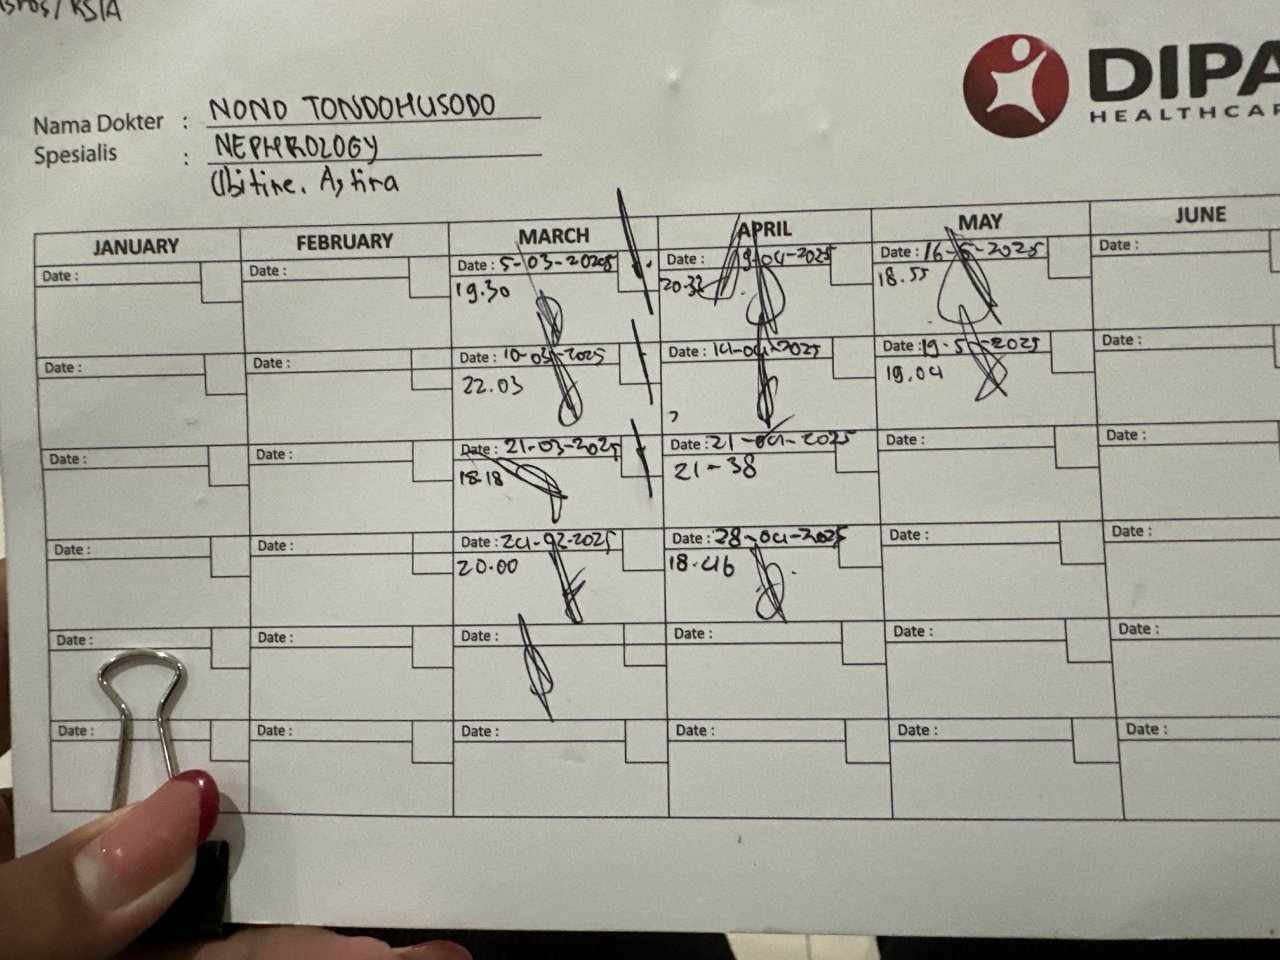 / KSIA
DIPA
HEALTHCAR
Nama Dokter : NONO TONDOHUSODO
Spesialis : NEPHROLOGY
JANUARY FEBRUARY MARCH APRIL MAY JUNE
Date : Date : Date : 5-03-2025 Date : 9-04-2025 Date : 16-5-2025 Date :
19.30 20.33 18.55
Date : Date : Date : 10-03-2025 Date : 14-04-2025 Date : 19-5-2025 Date :
22.03 19.04
Date : Date : Date : 21-03-2025 Date : 21-04-2025 Date : Date :
18.18 21-38
Date : Date : Date : 24-02-2025 Date : 28-04-2025 Date : Date :
20.00 18.46
Date : Date : Date : Date : Date : Date :
Date : Date : Date : Date : Date : Date :